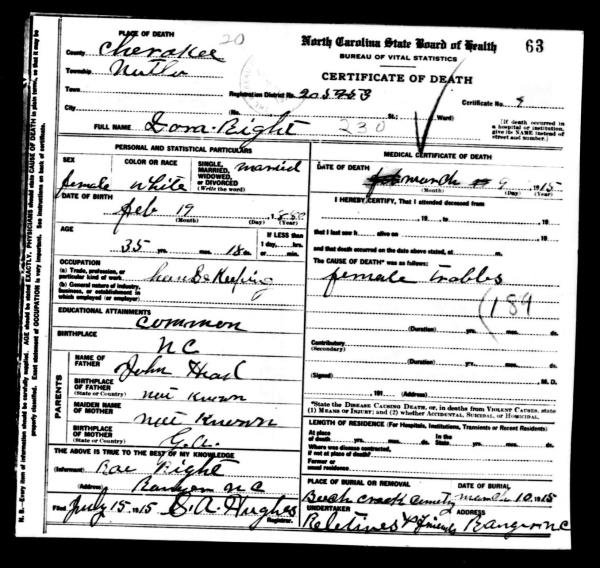 PLACE OF DEATH
County Cherokee 20
Township
Town
City
North Carolina State Board of Health 63
BUREAU OF VITAL STATISTICS
CERTIFICATE OF DEATH
Registration District No. Certificate No. 9
(No. St.; Ward)
[If death occurred in a hospital or institution, give its NAME instead of street and number.]
FULL NAME Dora Right 230
PERSONAL AND STATISTICAL PARTICULARS
SEX female
COLOR OR RACE White
SINGLE, MARRIED, WIDOWED, or DIVORCED (Write the word) married
DATE OF BIRTH
feb 19
(Month) (Day) (Year)
AGE
35 yrs. mos. 18 ds.
If LESS than 1 day, hrs. or min.
OCCUPATION
(a) Trade, profession, or particular kind of work
(b) General nature of industry, business, or establishment in which employed (or employer)
Keeping
EDUCATIONAL ATTAINMENTS
common
BIRTHPLACE
NC
PARENTS
NAME OF FATHER John Head
BIRTHPLACE OF FATHER (State or Country) not Known
MAIDEN NAME OF MOTHER not Known
BIRTHPLACE OF MOTHER (State or Country)
THE ABOVE IS TRUE TO THE BEST OF MY KNOWLEDGE
(Informant) Right
(Address) NC
Filed July 15 1915 S. A. Hughes
Registrar.
MEDICAL CERTIFICATE OF DEATH
DATE OF DEATH march 9 1915
(Month) (Day) (Year)
I HEREBY CERTIFY, That I attended deceased from
, 19 , to , 19
that I last saw h alive on , 19
and that death occurred on the date above stated, at m.
The CAUSE OF DEATH* was as follows:
female trobles
189
(Duration) yrs. mos. ds.
Contributory
(Secondary)
(Duration) yrs. mos. ds.
(Signed) M. D.
, 191 (Address)
*State the DISEASE CAUSING DEATH, or, in deaths from VIOLENT CAUSES, state (1) MEANS OF INJURY; and (2) whether ACCIDENTAL, SUICIDAL, or HOMICIDAL.
LENGTH OF RESIDENCE (For Hospitals, Institutions, Transients or Recent Residents)
At place of death yrs. mos. ds. In the State yrs. mos. ds.
Where was disease contracted, if not at place of death?
Former or usual residence
PLACE OF BURIAL OR REMOVAL DATE OF BURIAL
Beech creek march 10 1915
UNDERTAKER ADDRESS
Reletives & friends NC
N. B.—Every item of information should be carefully supplied. AGE should be stated EXACTLY. PHYSICIANS should state CAUSE OF DEATH in plain terms, so that it may be properly classified. Exact statement of OCCUPATION is very important. See instructions on back of certificate.